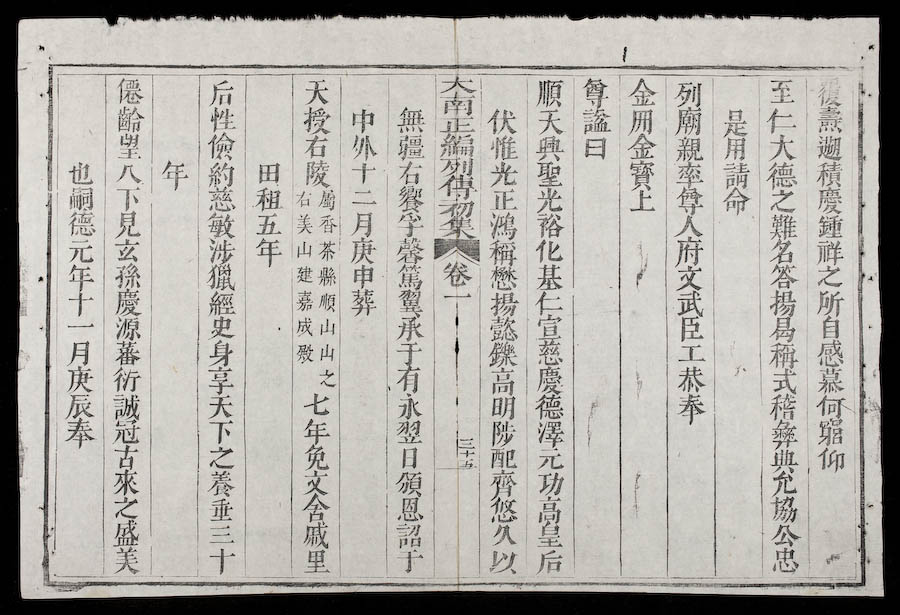 覆燾遡積慶鍾祥之所自感慕何窮仰
至仁大德之難名答揚曷稱式稽彝典允協公忠
是用請命
列廟親率尊人府文武臣工恭奉
金冊金寶上
尊諡曰
順天興聖光裕化基仁宣慈慶德澤元功高皇后
伏惟光正鴻稱懋揚懿鑠高明陟配齊悠久以
大南正編列傳初集 卷一 三十五
無疆右饗孚馨篤翼承于有永翌日頒恩詔于
中外十二月庚申葬
天授右陵屬香茶縣順山山之右美山建嘉成殿七年免文舍戚里
田租五年
后性儉約慈敏涉獵經史身享天下之養垂三十
年
僊齡望八下見玄孫慶源蕃衍誠冠古來之盛美
也嗣德元年十一月庚辰奉